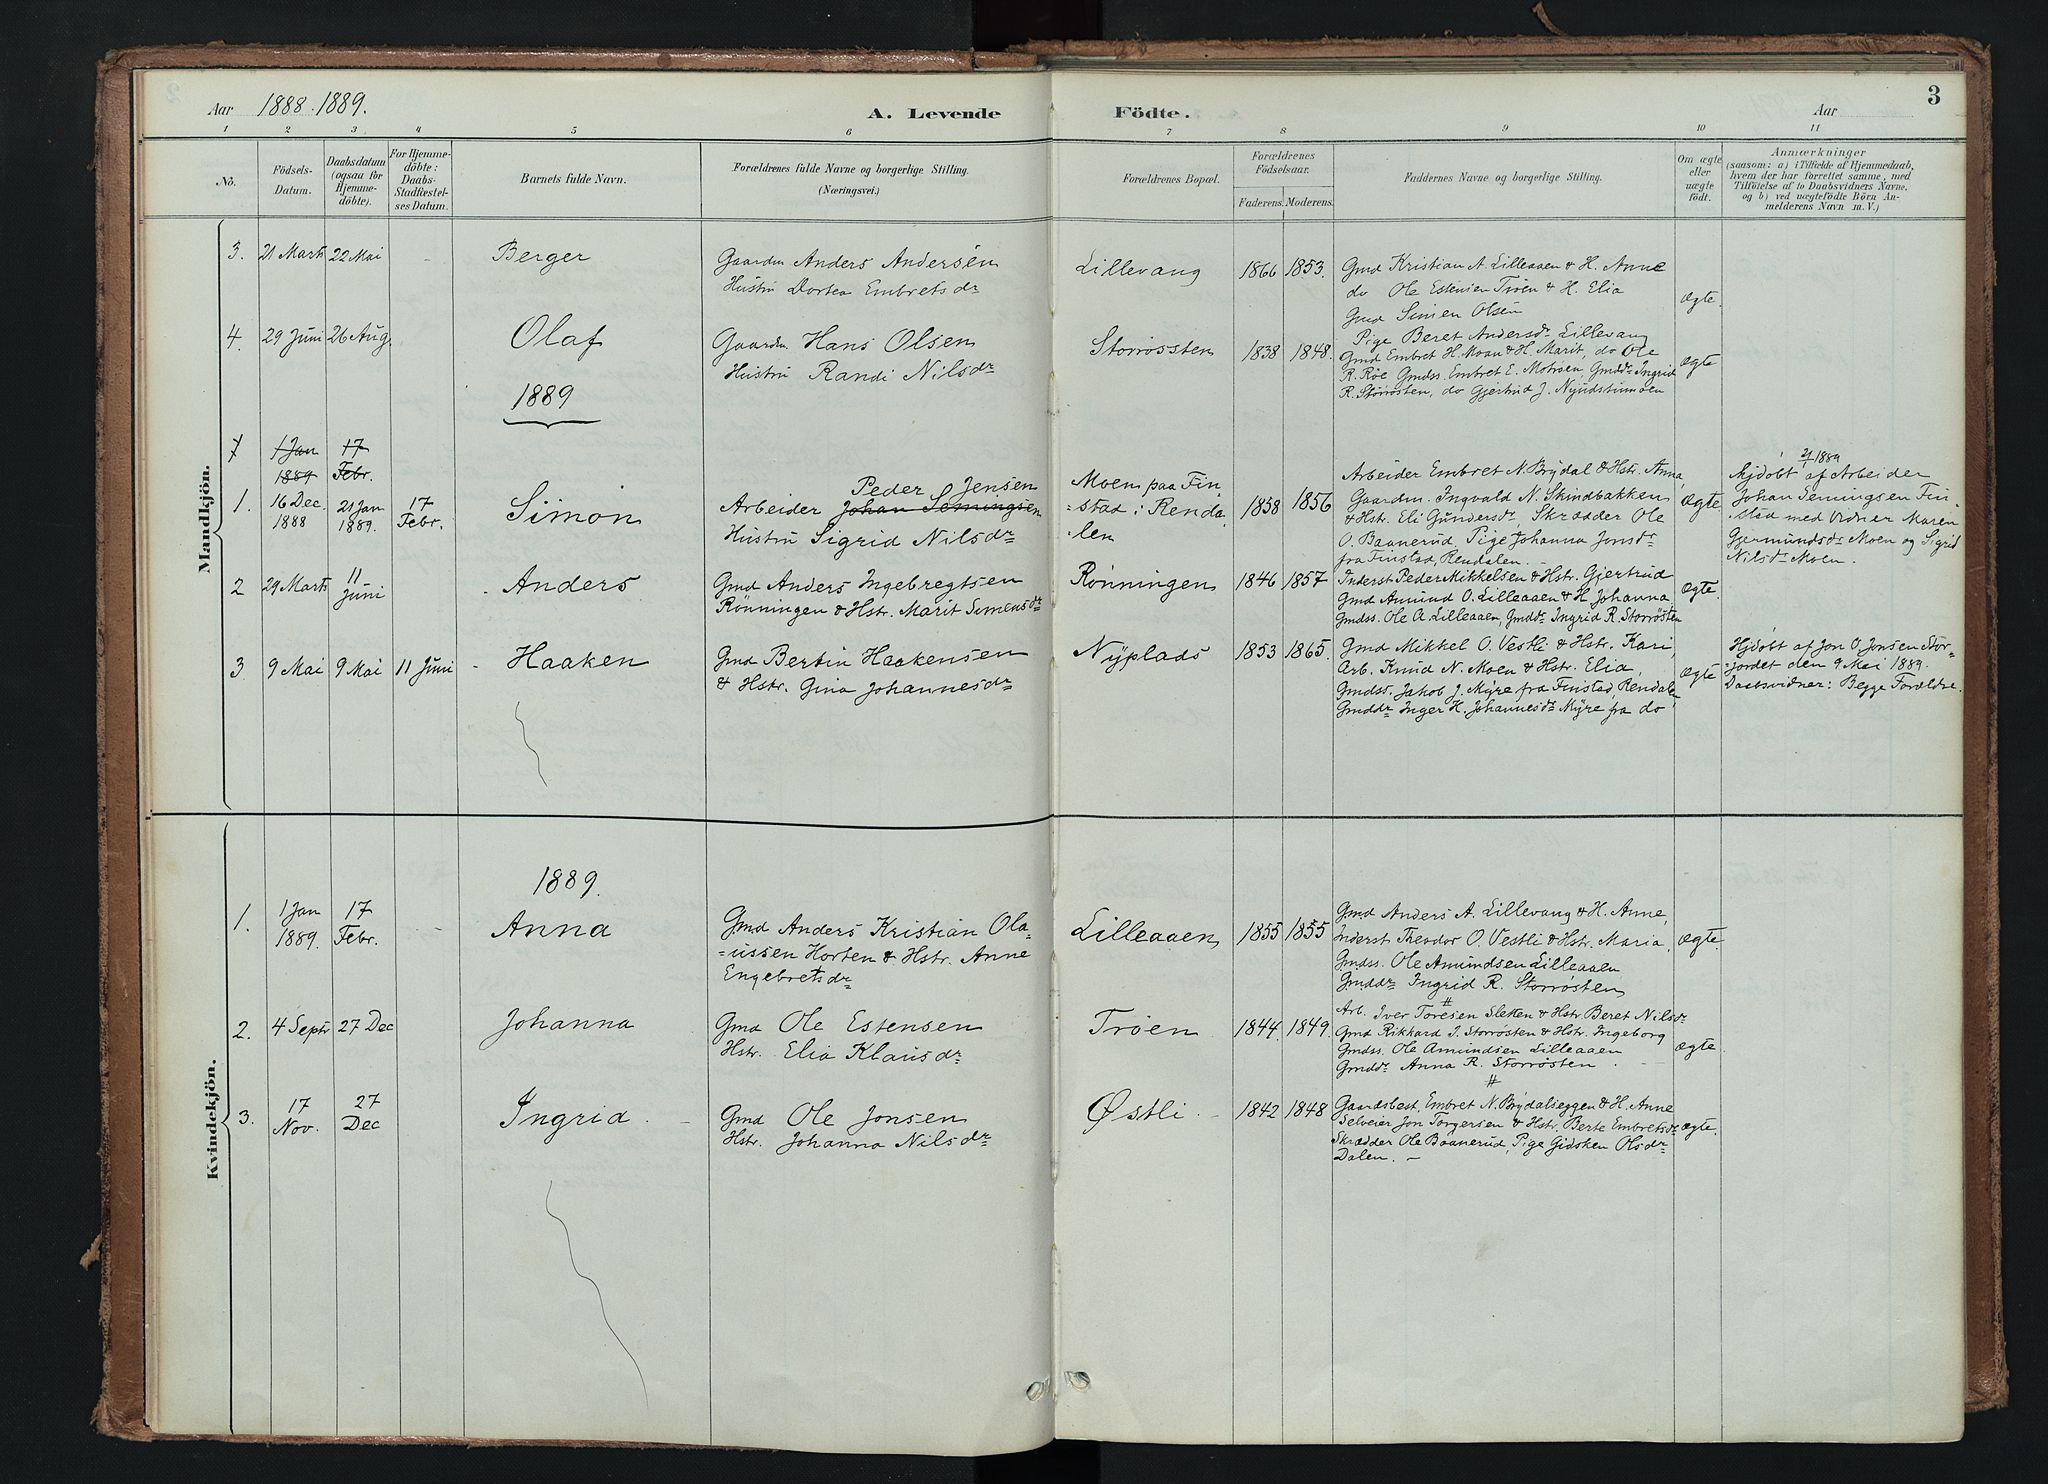 Aar 1888-1889.
A. Levende Födte.
Aar
3
1 2 3 4 5 6 7 8 9 10 11
No.
Födsels-
Datum.
Daabsdatum
(ogsaa for
Hjemme-
döbte).
For Hjemme-
döbte:
Daabs-
Stadfestel-
ses Datum.
Barnets fulde Navn.
Forældrenes fulde Navne og borgerlige Stilling.
(Næringsvei.)
Forældrenes Bopæl.
Forældrenes
Födselsaar.
Faderens. Moderens.
Faddernes Navne og borgerlige Stilling.
Om ægte
eller
uægte
födt.
Anmærkninger
(saasom: a) i Tilfælde af Hjemmedaab,
hvem der har forrettet samme, med
Tilföielse af to Daabsvidners Navne,
og b) ved uægtefödte Börn An-
melderens Navn m. V.)
Mandkjön.
3. 21 Marts 22 Mai - Berger
Gaardm Anders Andersen
Hustru Dortea Embretsdr
Lillevang 1866 1853.
Gmd Kristian A. Lilleaaen & H. Anne
do Ole Estensen Trøen & H. Elia
Gmd Simen Olsen
Pige Beret Andersdr Lillevang
Ægte.
4. 29 Juni 26 Aug. Olaf
Gaardm. Hans Olsen
Hustru Randi Nilsdr
Storrøsten 1838 1848.
Gmd Embret H. Moan & H. Marit, do Ole
R. Røe Gmdss. Embret E. Motrøen, Gmddr Ingrid
R. Storrøsten, do Gjertrud J. Nyrudstumoen
Ægte
1889
1 Jan
1889
17
Febr.
1. 16 Dec.
1888
21 Jan
1889.
17
Febr.
Simon
Peder Jensen
Arbeider Johan Semingsen
Hustru Sigrid Nilsdr
Moen paa Fin-
-stad i Renda-
len
1858 1856
Arbeider Embret N. Brydal & Hstr. Anna,
Gaardm. Ingvald N. Skindbakken
& Hstr. Eli Gundersdr, Skrædder Ole
O. Baanerud Pige Johanna Jonsdr
fra Finstad, Rendalen. -
Ægte
21/1 1889
Hjdøbt af Arbeider
Johan Semingsen Fin-
stad med Vidner Maren
Gjermundsdr Moen og Sigrid
Nilsdr Moen.
2 29 Marts 11
Juni
- Anders
Gmd Anders Ingebregtsen
Rønningen & Hstr. Marit Simensdr
Rønningen 1846 1857
Inderst Peder Mikkelsen & Hstr. Gjertrud
Gmd Amund O. Lilleaaen & H Johanna
Gmdss. Ole A. Lilleaaen, Gmddr Ingrid R. Storrøsten
Ægte.
3 9 Mai 9 Mai 11 Juni - Haaken
Gmd Bertin Haakensen
& Hstr. Gina Johannesdr
Nyplads 1853 1865.
Gmd Mikkel O. Vestli & Hstr. Kari,
Arb. Knud N. Moen & Hstr. Elia,
Gmdss. Jakob J. Myre fra Finstad, Rendalen
Gmddr Inger H. Johannesdr Myre fra do
Ægte
Hjdøbt af Jon O. Jonsen Stor-
jordet den 9 Mai 1889.
Daabsvidner: Begge Forældre.
Kvindekjön.
1889.
1. 1 Jan
1889.
17
Febr.
Anna
Gmd Anders Kristian Ola-
-ussen Horten & Hstr. Anne
Engebretsdr
Lilleaaen 1855 1855
Gmd Anders A. Lillevang & H. Anne,
Inderst Theodor O. Vestli & Hstr. Maria,
Gmdss. Ole Amundsen Lilleaaen
Gmddr Ingrid R. Storrøsten
Ægte
2. 4 Septr 27 Dec Johanna
Gmd Ole Estensen
Hstr. Elia Klausdr
Trøen 1844. 1849.
Arb. Iver Toresen Sletten & Hstr Beret Nilsdr
Gmd Rikkard I. Storrøsten & Hstr. Ingeborg
Gmdss. Ole Amundsen Lilleaaen
Gmddr Anna R. Storrøsten.
Ægte
3. 17
Nov.
27
Dec
Ingrid. -
Gmd Ole Jonsen
Hstr. Johanna Nilsdr
Østli. - 1842 1848
Gaardsbest. Embret N. Brydalseggen & H. Anne
Selveier Jon Torgersen & Hstr. Berte Embretsdr
Skrædder Ole Baanerud, Pige Gidsken Olsdr
Dalen. -
Ægte.